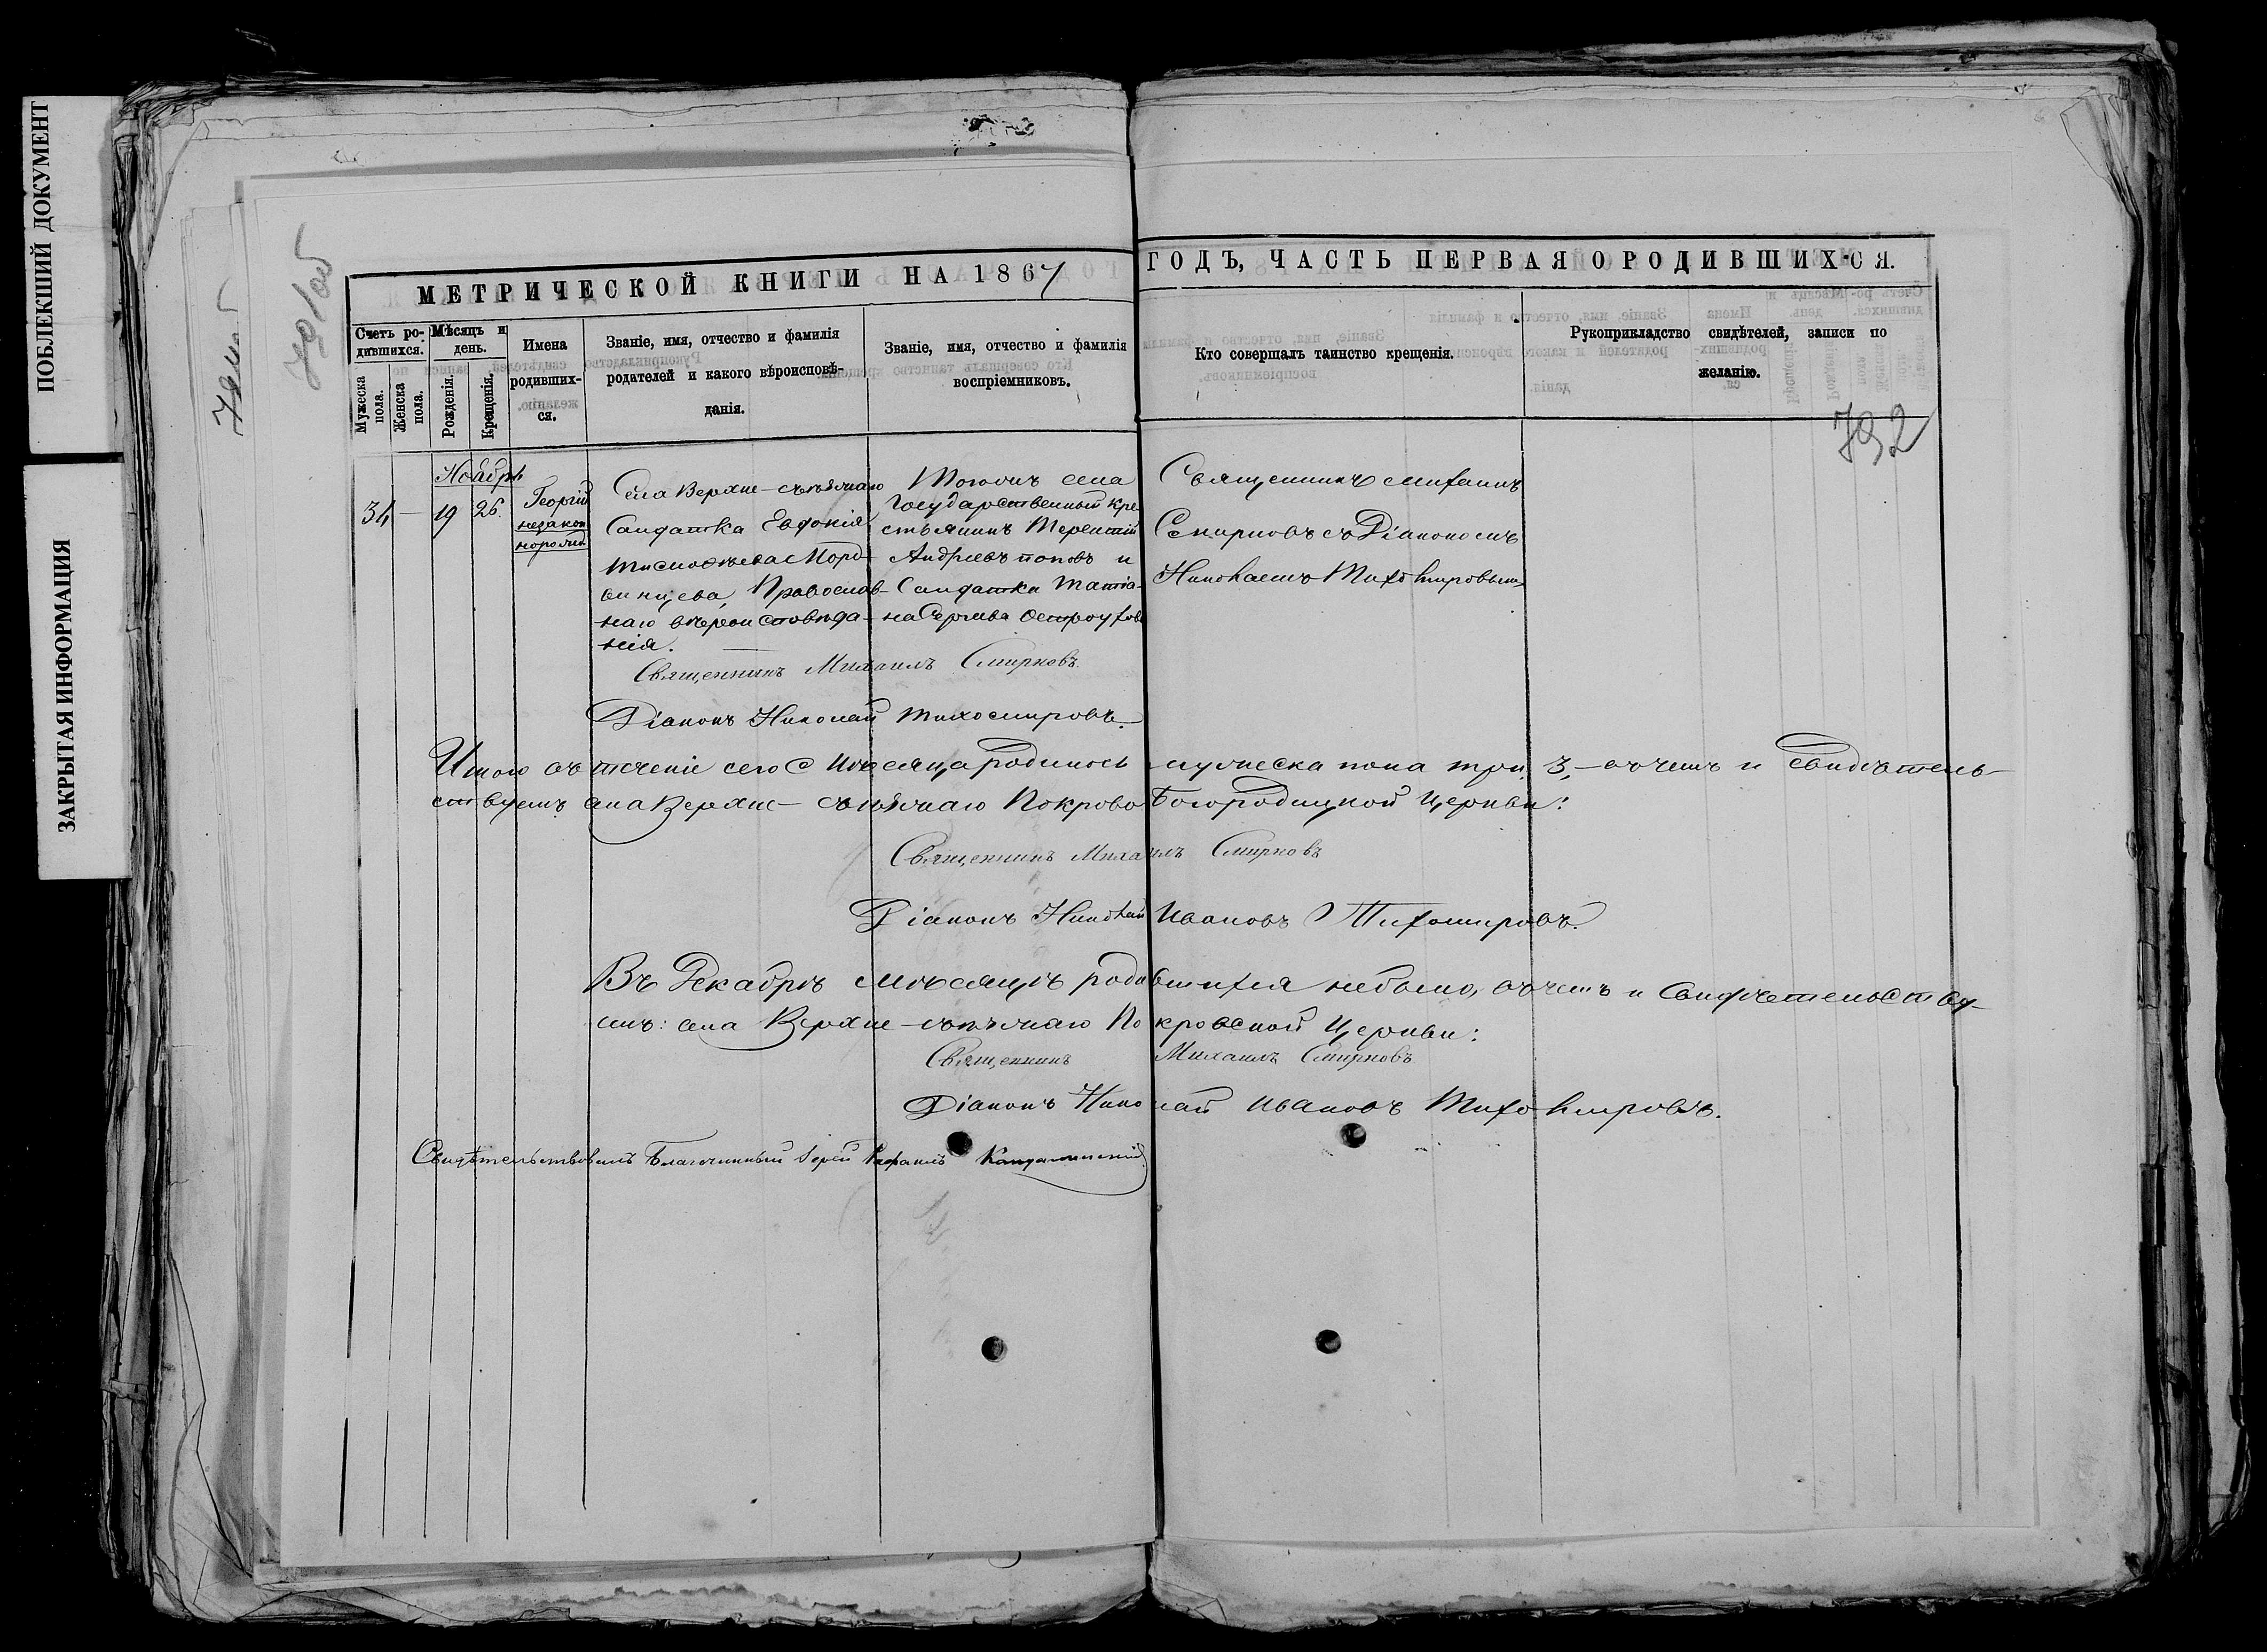 ПОБЛЕКШИЙ ДОКУМЕНТ
ЗАКРЫТАЯ ИНФОРМАЦИЯ
МЕТРИЧЕСКОЙ КНИГИ НА 1867 ГОДЪ, ЧАСТЬ ПЕРВАЯ О РОДИВШИХСЯ.
792
Счетъ родившихся.
Мужеска пола.
Женска пола.
Мѣсяцъ и день.
Рожденія.
Крещенія.
Имена родивших-ся.
Званіе, имя, отчество и фамилія
родителей и какого вѣроисповѣ-
данія.
Званіе, имя, отчество и фамилія
воспріемниковъ.
Кто совершалъ таинство крещенія.
Рукоприкладство свидѣтелей, записи по
желанію.
Ноябрь
34 — 19 26.
Георгій
незакон
норожд.
Села Верхне-съезжаго
Салдатка Евдокія
Морд-
винцева, Православ-
наго вѣроисповѣда-
нія. —
Тогожъ села
Государственный кре
стьянинъ Терентій
Андреевъ Поповъ и
Салдатка Татіа-
на Сергіева Остроухова
Священникъ Михаилъ
Смирновъ съ Діакономъ
Николаемъ Тихомировымъ
Священникъ Михаилъ Смирновъ
Діаконъ Николай Тихомировъ.
Итого въ теченіе сего мѣсяца родилось мужеска пола три, 3, — въ чемъ и свидѣтель-
ствуемъ села Верхне-съезжаго Покрово Богородицкой Церкви:
Священникъ Михаилъ Смирновъ
Діаконъ Николай Ивановъ Тихомировъ.
Въ Декабрѣ мѣсяцѣ родившихся небыло, въ чемъ и свидѣтельству-
емъ: села Верхне-съезжаго Покровской Церкви:
Священникъ Михаилъ Смирновъ
Діаконъ Николай Ивановъ Тихомировъ.
Свидѣтельствовалъ Благочинный Іерей